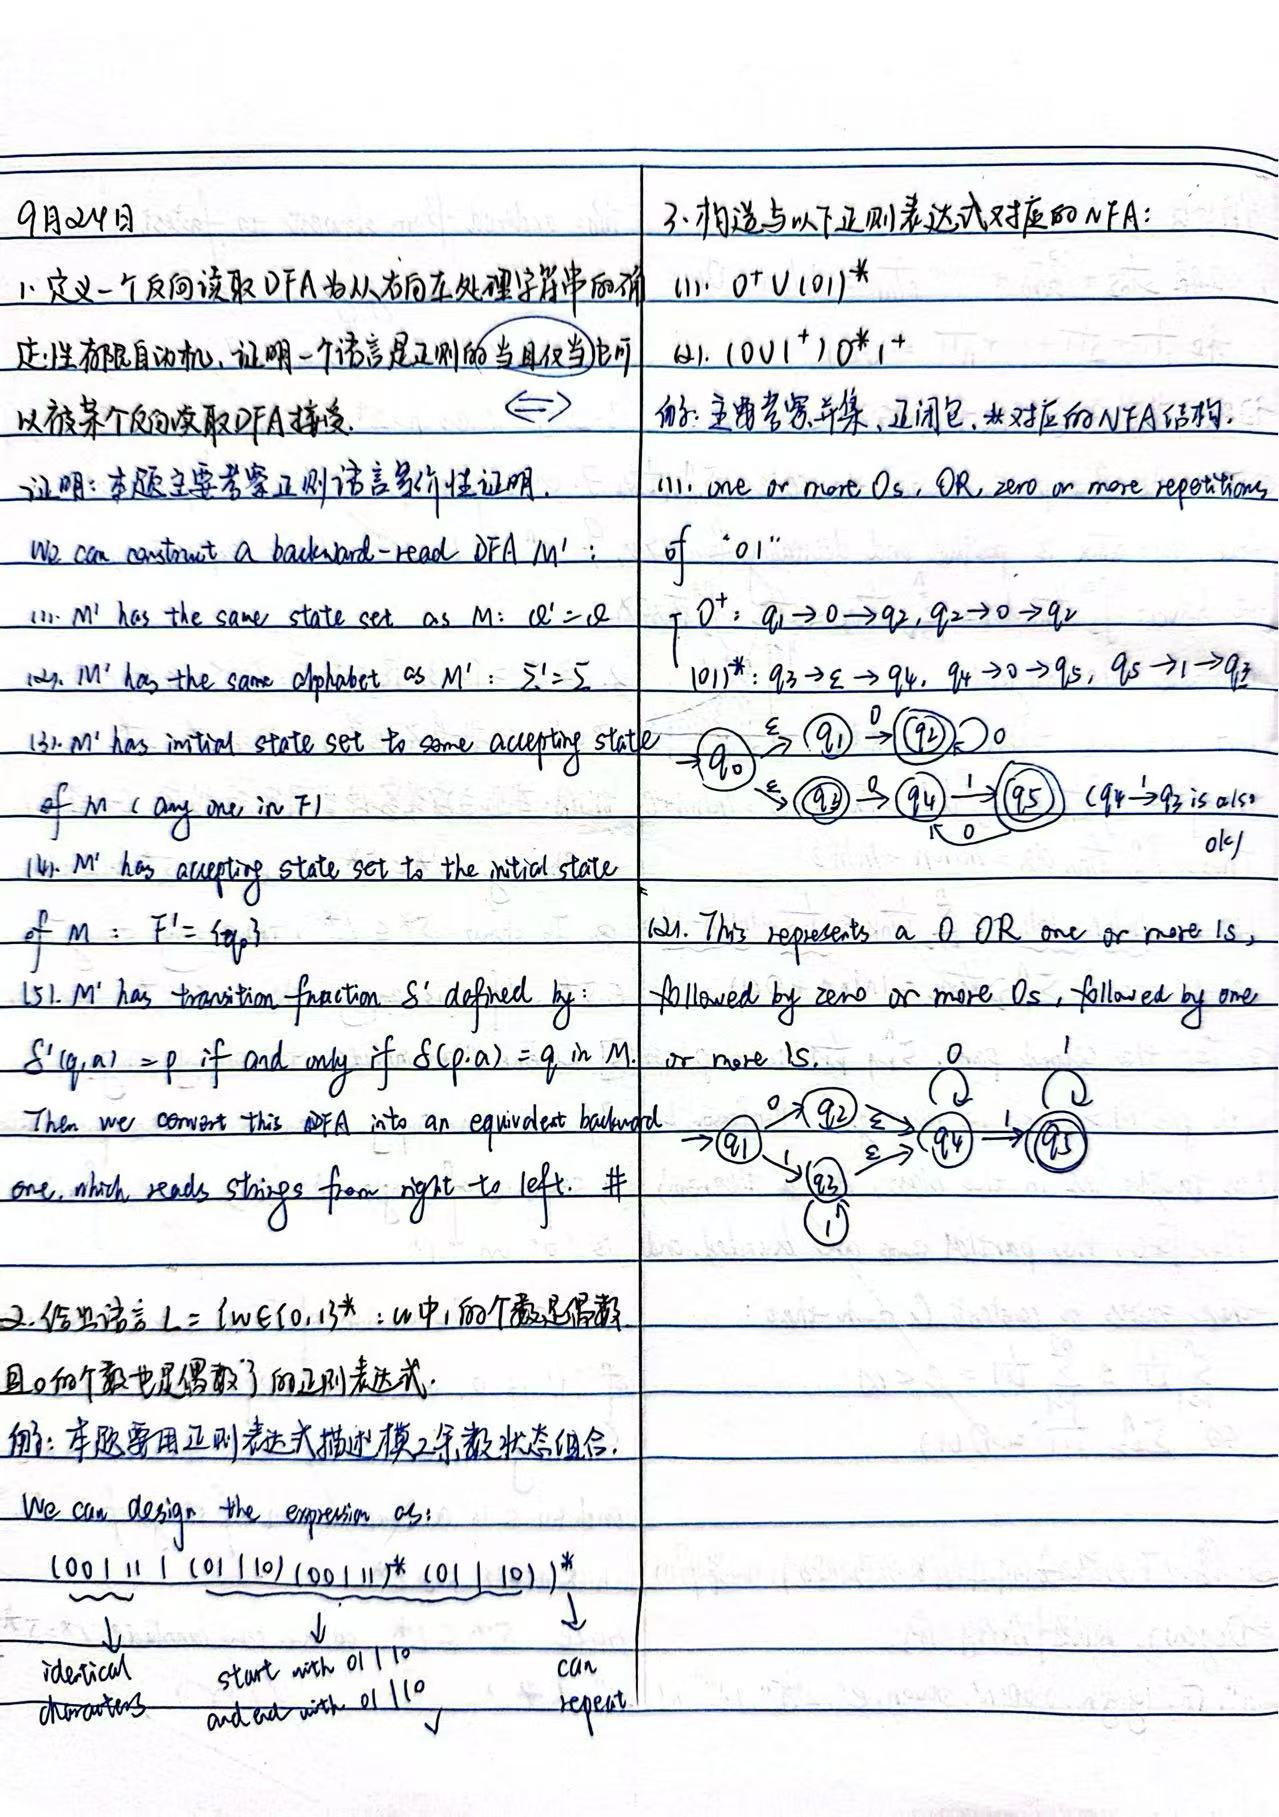 9月24日
1. 定义一个反向读取DFA为从右向左处理字符串的确
定性有限自动机. 证明一个语言是正则的当且仅当它可
以被某个反向读取DFA接受.
⇔
证明: 本题主要考察正则语言等价性证明.
We can construct a backward-read DFA M':
(1). M' has the same state set as M: Q'=Q
(2). M' has the same alphabet as M': Σ'=Σ
(3). M' has initial state set to some accepting state
of M (any one in F)
(4). M' has accepting state set to the initial state
of M: F'={q0}
(5). M' has transition function δ' defined by:
δ'(q,a) = p if and only if δ(p,a) = q in M.
Then we convert this DFA into an equivalent backward
one, which reads strings from right to left. #
2. 给出语言 L = {w∈{0,1}* : w中1的个数是偶数
且0的个数也是偶数} 的正则表达式.
解: 本题要用正则表达式描述模2余数状态组合.
We can design the expression as:
(00|11|(01|10)(00|11)*(01|10))*
identical
characters
start with 01|10
and end with 01|10
✓
can
repeat
3. 构造与以下正则表达式对应的NFA:
(1). 0⁺∪(01)*
(2). (0∪1⁺)0*1⁺
解: 主要考察并集、正闭包、*对应的NFA结构.
(1). one or more 0s, OR, zero or more repetitions
of "01"
0⁺: q1→0→q2, q2→0→q2
(01)*: q3→ε→q4, q4→0→q5, q5→1→q3
q0 ε q1 0 q2 0
ε q3 0 q4 1 q5 0 (q4 1→q3 is also
ok)
(2). This represents a 0 OR one or more 1s,
followed by zero or more 0s, followed by one
or more 1s.
0 1
q1 0 q2 ε q4 1 q5
1 q3 ε
1